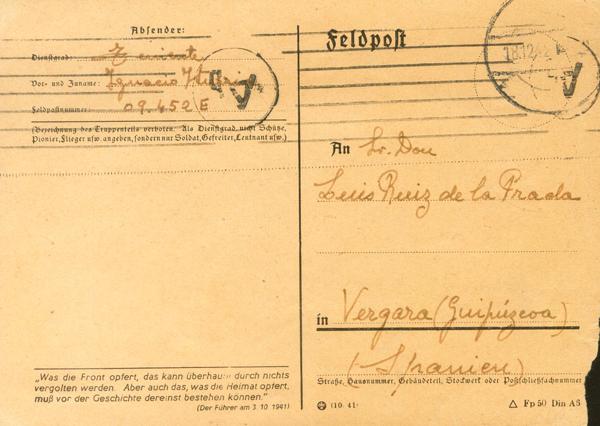 Absender:
Dienstgrad: Teniente
Vor- und Zuname: Ignacio
Feldpostnummer: 09.452 E
(Bezeichnung des Truppenteils verboten. Als Dienstgrad nicht Schütze,
Pionier, Flieger usw. angeben, sondern nur Soldat, Gefreiter, Leutnant usw.)
„Was die Front opfert, das kann überhaupt durch nichts
vergolten werden. Aber auch das, was die Heimat opfert,
muß vor der Geschichte dereinst bestehen können.“
(Der Führer am 3 10 1941)
(10. 41)
Feldpost
18.12.42
An Sr. Don
Luis Ruiz de la Prada
in Vergara (Guipúzcoa)
(Spanien)
Straße, Hausnummer, Gebäudeteil, Stockwerk oder Postschließfachnummer
Fp 50 Din A6